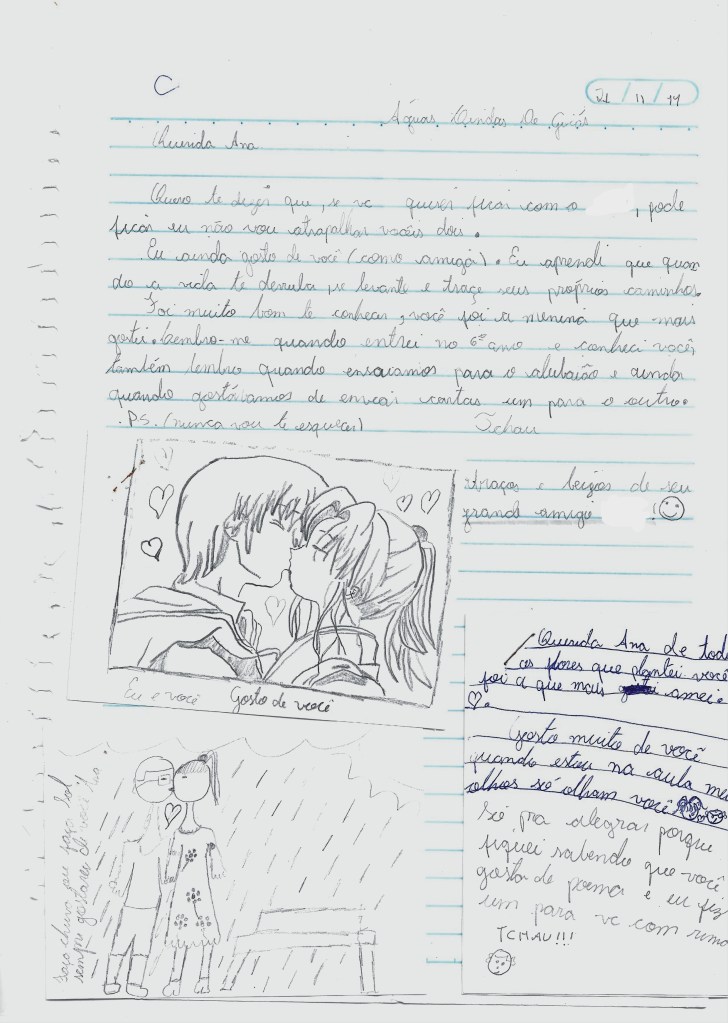 C
21/11/11
Águas Lindas De Goiás
Querida Ana
Quero te dizer que, se vc quiser ficar com o , pode
ficar eu não vou atrapalhar vocêis dois.
Eu ainda gosto de você (como amiga). Eu aprendi que quan
do a vida te derruba, se levante e traçe seus próprios caminhos.
Foi muito bom te conhecer, você foi a menina que mais
gostei. Lembro-me quando entrei no 6º ano e conheci você,
também lembro quando ensaiamos para o e ainda
quando gostávamos de enviar cartas um para o outro.
PS. (nunca vou te esquecer) Tchau
Abraços e beijos de seu
grande amigo !
Eu e você Gosto de você
faça chuva ou faça Sol
sempre gostarei de você
Querida Ana de tod
as flores que plantei você
foi a que mais amei.
Gosto muito de você
quando estou na aula meu
olhos só olham você
Só pra alegrar porque
fiquei sabendo que você
gosta de poema e eu fiz
um para vc com rima
TCHAU!!!